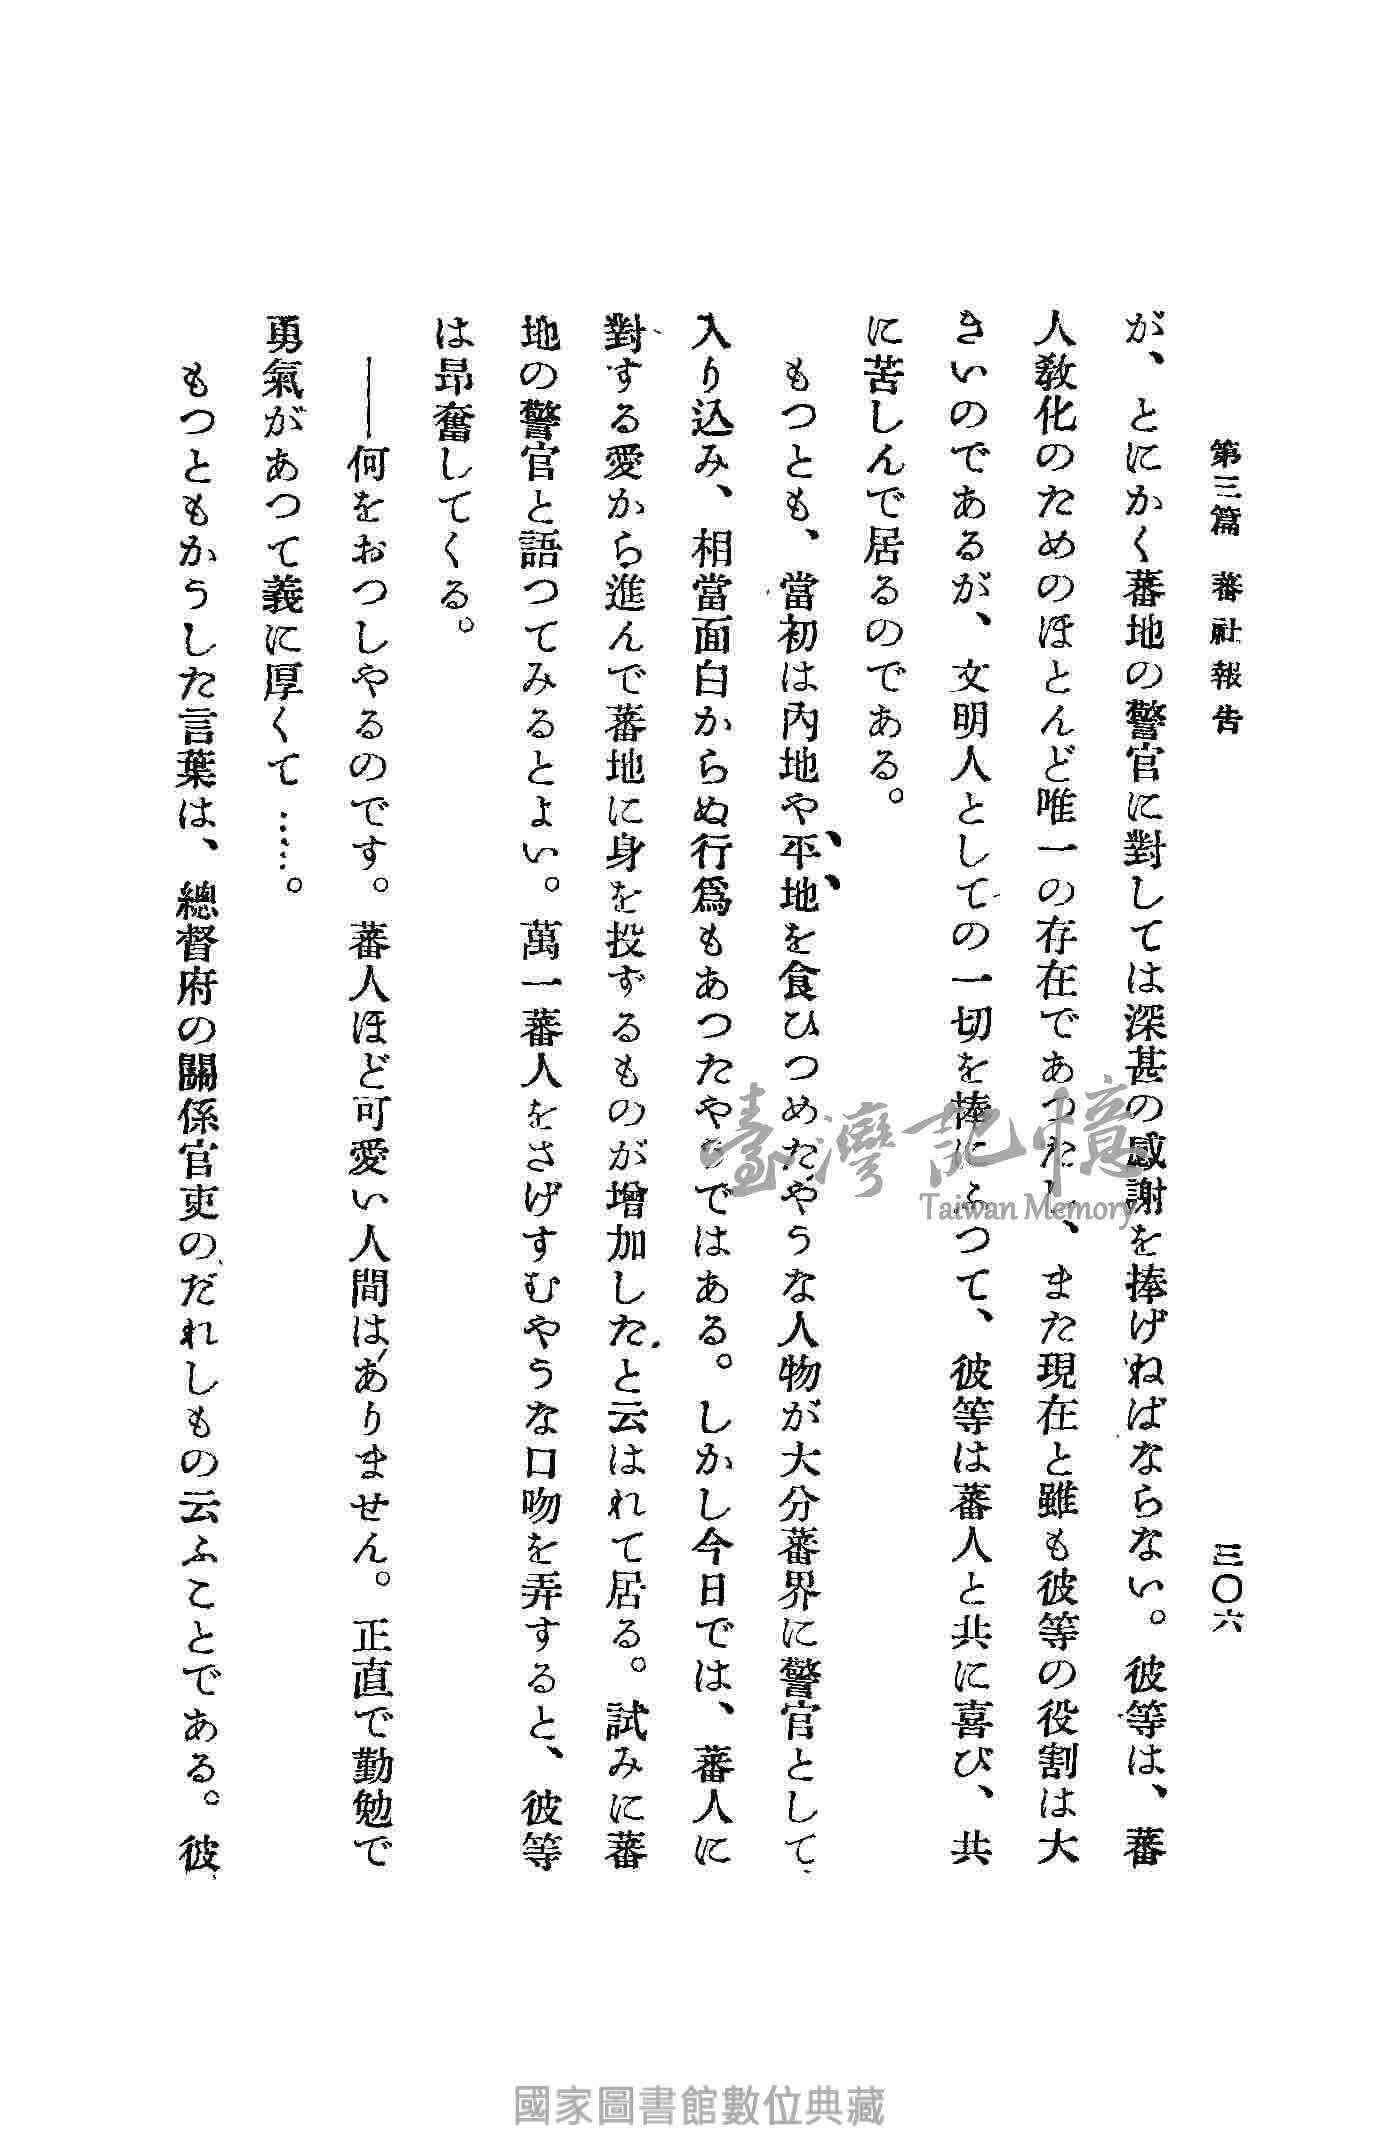 第三篇 蕃社報告 三〇六
が、とにかく蕃地の警官に對しては深甚の感謝を捧げねばならない。彼等は、蕃
人教化のためのほとんど唯一の存在であつたし、また現在と雖も彼等の役割は大
きいのであるが、文明人としての一切を棒にふつて、彼等は蕃人と共に喜び、共
に苦しんで居るのである。
もつとも、當初は内地や平地を食ひつめたやうな人物が大分蕃界に警官として、
入り込み、相當面白からぬ行爲もあつたやうではある。しかし今日では、蕃人に
對する愛から進んで蕃地に身を投ずるものが增加したと云はれて居る。試みに蕃
地の警官と語つてみるとよい。萬一蕃人をさげすむやうな口吻を弄すると、彼等
は昻奮してくる。
――何をおつしやるのです。蕃人ほど可愛い人間はありません。正直で勤勉で
勇氣があつて義に厚くて……。
もつともかうした言葉は、總督府の關係官吏のだれしもの云ふことである。彼
臺灣記憶
Taiwan Memory
國家圖書館數位典藏